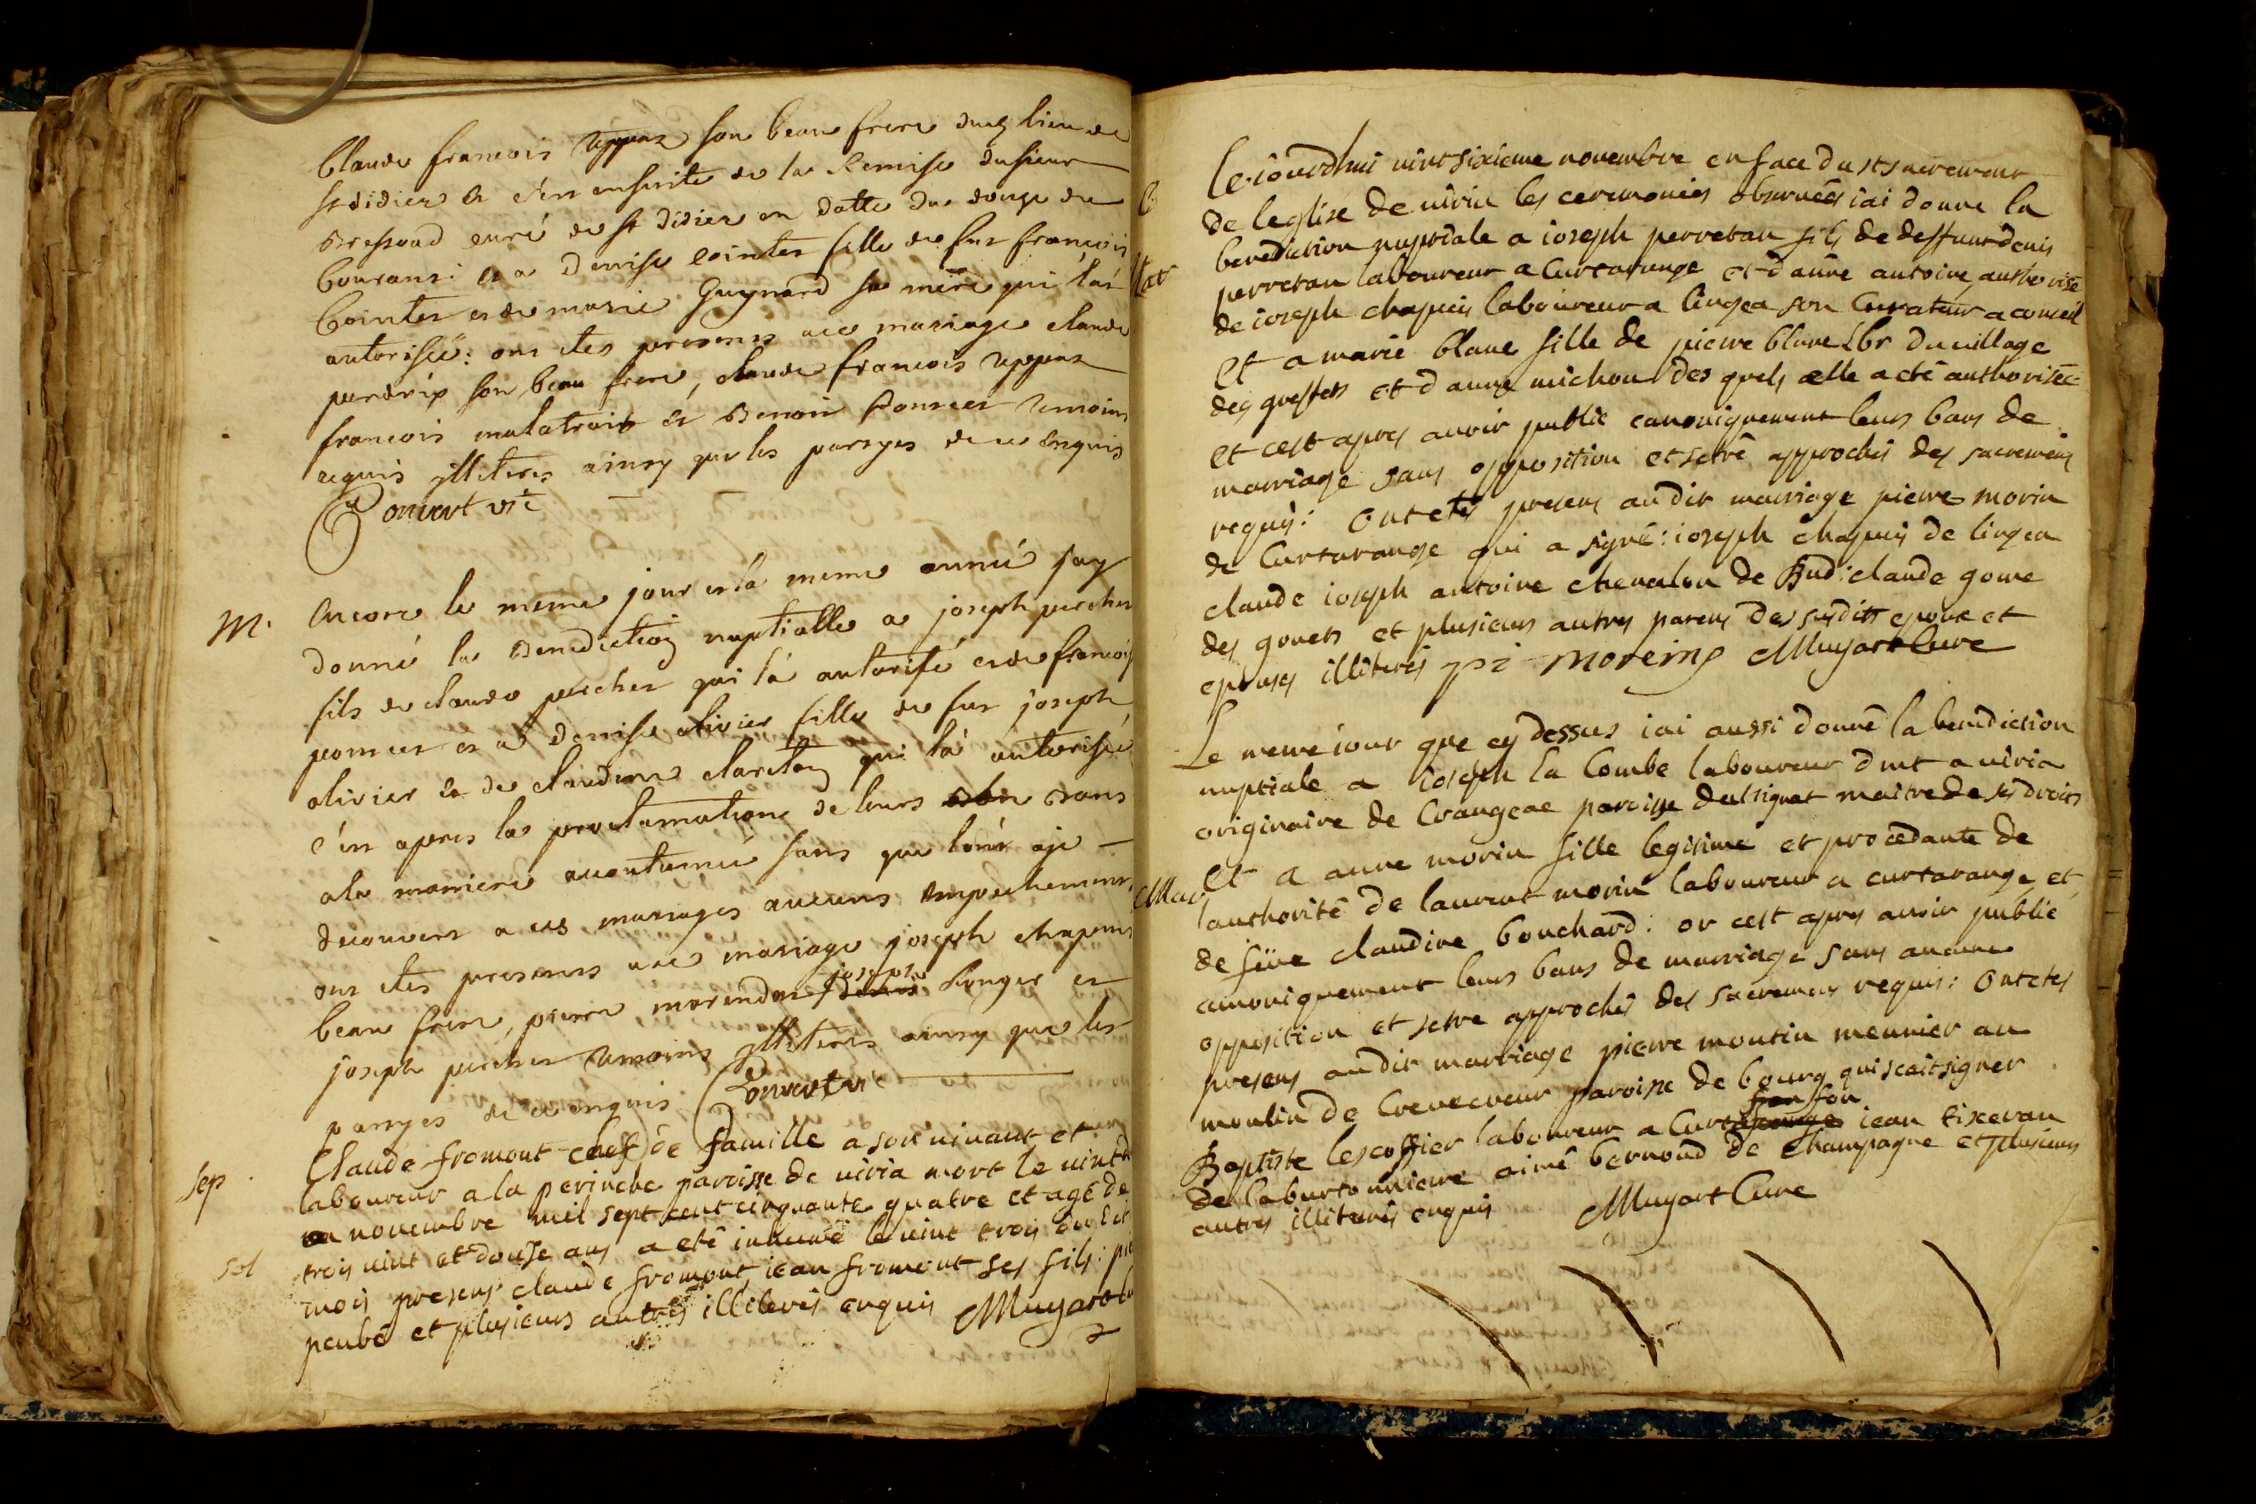 Claude francois uppaz son beau frere dud lieu de
st didier et c'en ensuite de la Remise du sieur
Bressoud curé de st didier en datte du douze du
Courant: et a Denise Cointer fille de fut francois
Cointer et de marie Guynard sa mère qui l'as
autorisée: ont étes presens ace mariage claude
perdrix son beau frere, claude francois uppaz
francois malatrait et Benoit ponncet temoins
requis illiteres ainsy que les partyes de ce enquis
Convert vic
M. Encore le meme jour et la meme année jay
donné la Benediction nuptialle a joseph percher
fils de claude percher qui l'a autorisé et de francoise
poncet et a denise olivier fille de fut joseph
olivier et de claudine clareton qui l'a autorisée
c'en apres la proclamation de leurs bans
a la maniere accoutumée sans que l'on aje
decouvert a ces mariages aucuns Empechemens
ont étes presens ace mariage joseph chapuis
beau frere, pierre morendet joseph Longer et
joseph percher temoins illiteres ainsy que les
partyes de ce enquis Convert vic
Sep. Claude fromont chef de famille a son vivant et
laboureur a la perinche paroisse de viria mort le vint
novembre mil sept cent cinquante quatre et agé de
Sol trois vint et douse ans a eté inhumé le vint trois dudit
mois presens claude fromont, iean fromont ses fils:
peubé et plusieurs autres illiterés enquis Muyart
Ce iourdhui vint sixieme novembre en face du st sacrement
de leglise de viria les ceremonies observees iai donne la
benediction nuptiale a ioseph perretan fils de deffunt denis
perretan laboureur a Curtarange et d'anne antoine authorisé
de ioseph chapuis laboureur a lingea son Curateur a conseil
Et a marie blanc fille de pierre blanc lbr du village
des greffets et d anne michon des quels elle a eté authorisée
Et cest apres avoir publie canoniquement leurs bans de
marriage sans opposition et setré approchés des sacremens
requis: Ont etés presens au dit marriage pierre morin
de Curtarange qui a signé: ioseph chapuis de lingea
claude ioseph antoine chevalon de Bud: claude gome
des gouets et plusieurs autres parens des susdits epoux et
epouses illiterés pi moreins Muyart Cure
Le meme iour que cy dessus iai aussi donné la benediction
nuptiale a ioseph la Combe laboureur dmt a viria
originaire de Crangeac paroisse datsignat maitre de ses droits
Mar Et a anne morin fille legitime et procedante de
l'authorité de laurent morin laboureur a curtarange et
de füe claudine bouchard: or cest apres avoir publié
canoniquement leurs bans de marriage sans aucune
opposition et setre approchés des sacremens requis: Ont etés
presens audit marriage pierre moutin meunier au
moulin de Crevecoeur paroisse de bourg qui scait signer
Baptiste lescoffier laboureur a Curtafon iean tixeran
de laburtonniere aimé bernoud de Champagne et plusieurs
autres illiterés enquis Muyart Cure